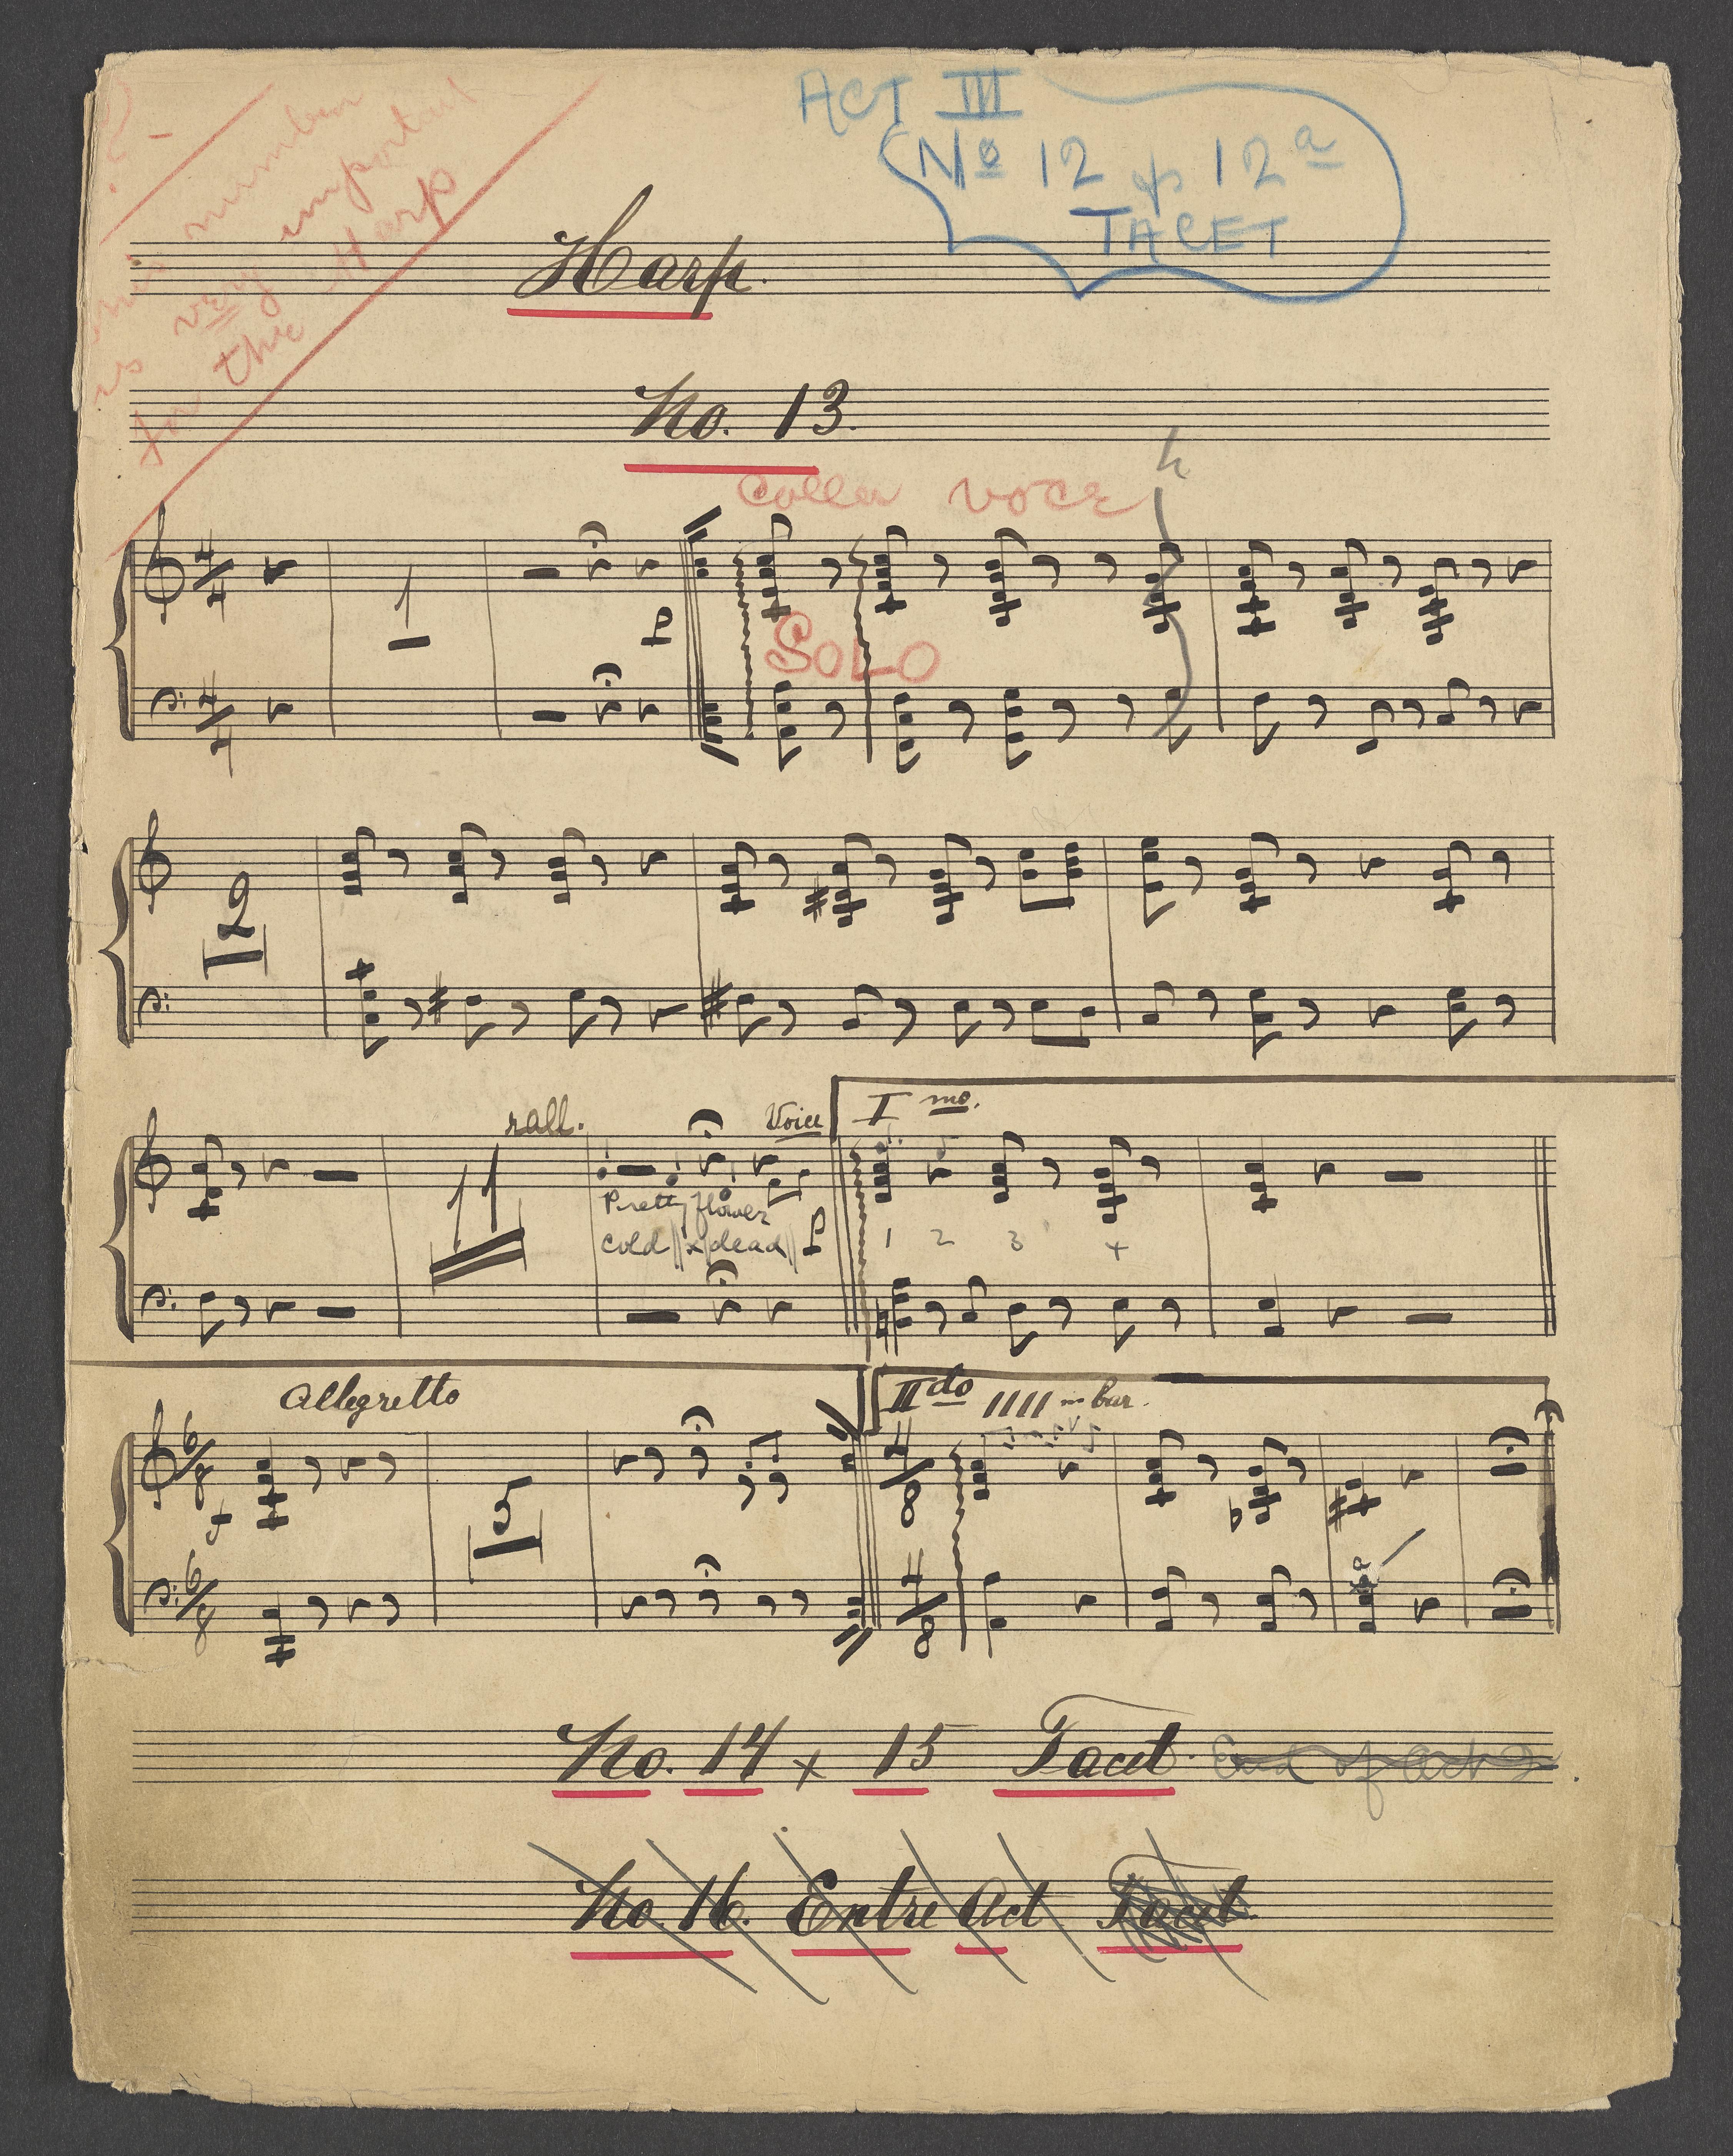 ACT III
Nº 12 & 12ª
TACET
number
is very important
for the Harp
Harp.
No. 13.
colla voce
h
1
p
SOLO
2
rall.
Voice
I mo.
11
Pretty flower
cold x dead
p
1 2 3 4
Allegretto
II do
IIII in bar.
6/8
5
No. 14 x 15 Tacet.
End of Act 2
No. 16. Entre Act Tacet.